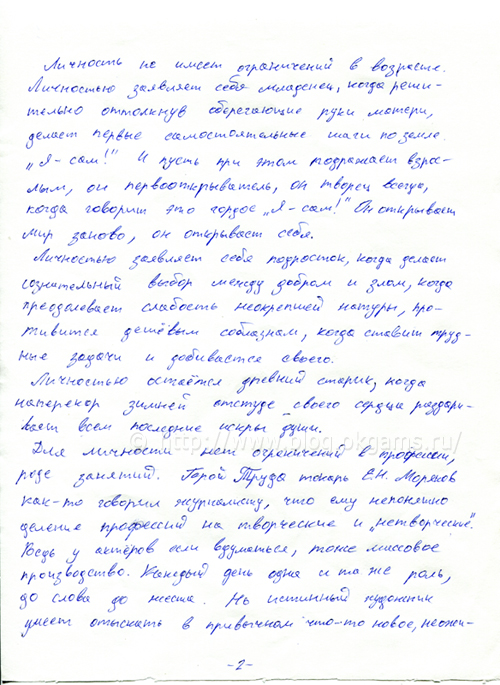 Личность не имеет ограничений в возрасте.
Личностью заявляет себя младенец, когда реши-
тельно оттолкнув оберегающие руки матери,
делает первые самостоятельные шаги по земле.
„Я - сам!" И пусть при этом подражает взрос-
лым, он первооткрыватель, он творец всегда,
когда говорит это гордое „Я - сам!" Он открывает
мир заново, он открывает себя.
Личностью заявляет себя подросток, когда делает
сознательный выбор между добром и злом, когда
преодолевает слабость неокрепшей натуры, про-
тивится дешёвым соблазнам, когда ставит труд-
ные задачи и добивается своего.
Личностью остаётся древний старик, когда
наперекор зимней отстуде своего сердца раздари-
вает всем последние искры души.
© http://www.blog.pkgams.ru/
Для личности нет ограничений в профессии,
роде занятий. Герой Труда токарь Е.Н. Моряков
как-то говорил журналисту, что ему непонятно
деление профессий на творческие и „нетворческие".
Ведь у актёров если вдуматься, тоже массовое
производство. Каждый день одна и та же роль,
до слова до жеста. Но истинный художник
умеет отыскать в привычном что-то новое, неожи-
-2-